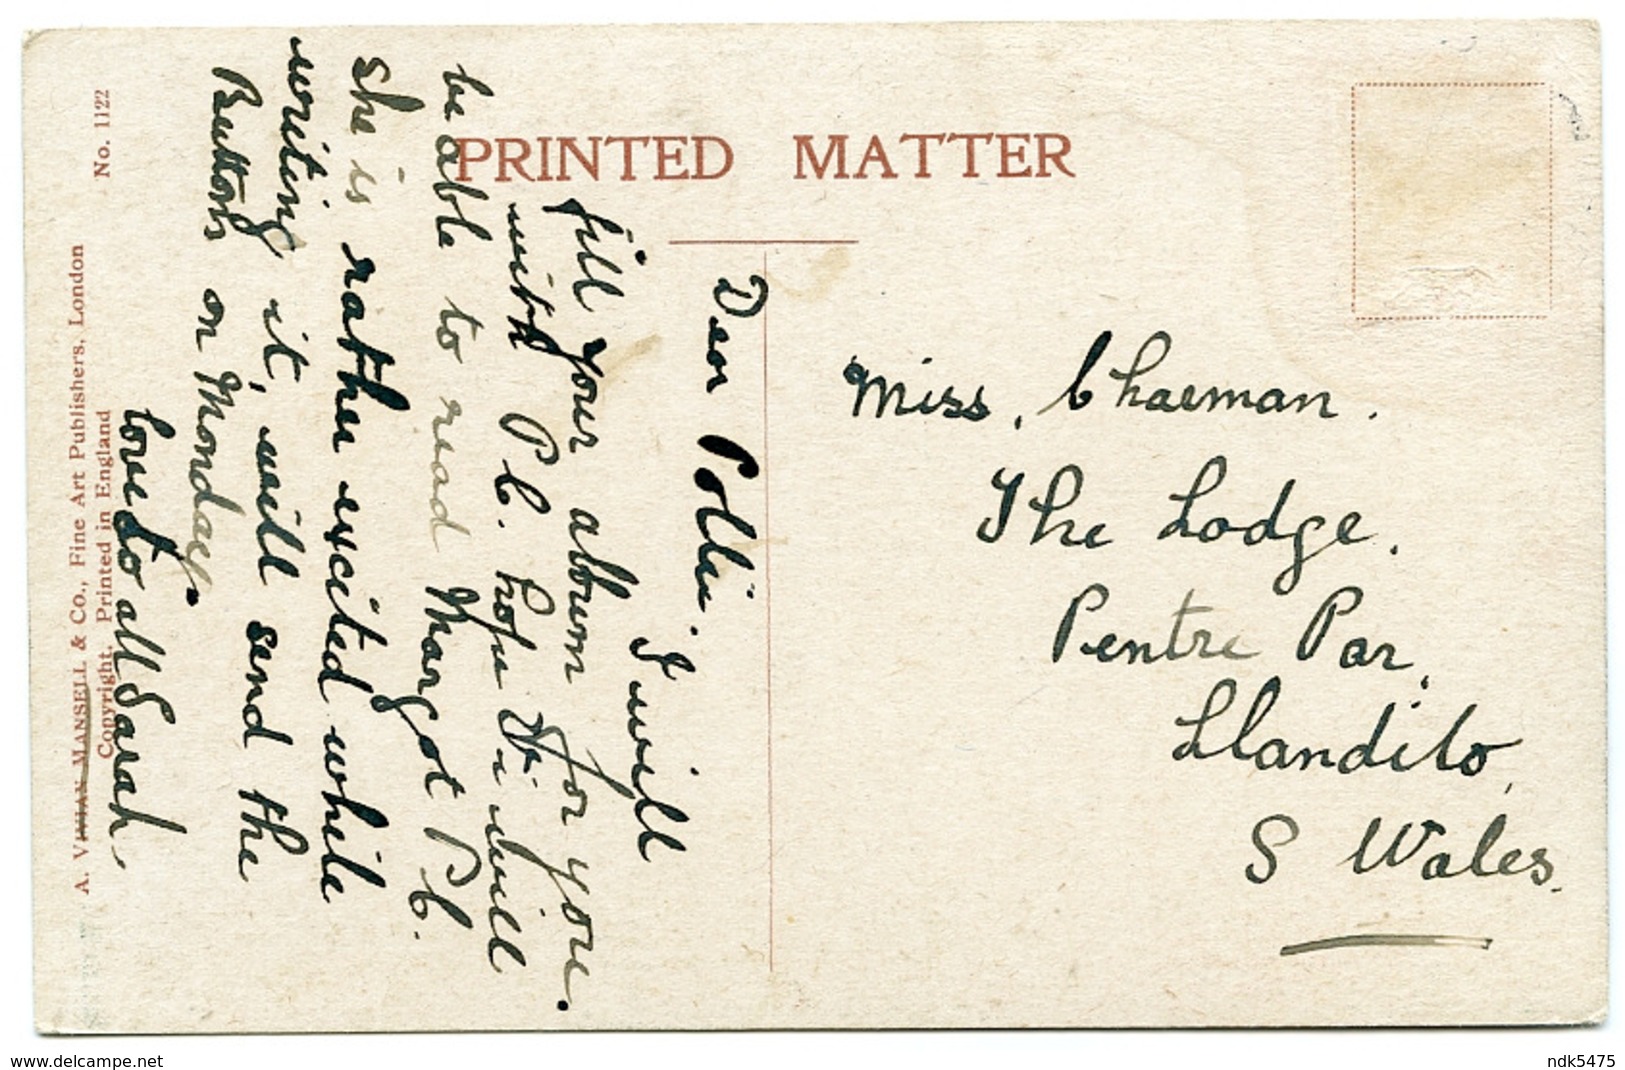 PRINTED MATTER
Dear Pollie. I will
fill your album for you.
with P.C. hope Di will
be able to read Margot P.C.
she is rather excited while
writing it, will send the
Buttons on Monday.
love to all Sarah.
Miss. Charman.
The Lodge.
Pentre Par,
Llandilo,
S Wales.
No. 1122
A. VIVIAN MANSELL & CO., Fine Art Publishers, London
Copyright. Printed in England
delcampe.net
ndk5475